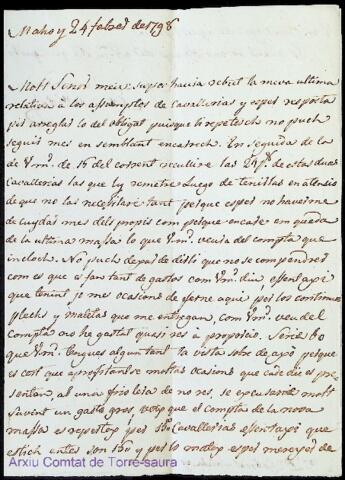 Mahoy 24 febrer de 1798
Molt Señor meu: super havia rebut la meva ultima
relativa a los assumptos de Cavallerias y esper resposta
per arreglar lo del obligat puisque li repetesch no puch
seguir mes en semblant encarrech. En seguida de la
de Vm. de 16 del corrent recullire las 24 p. de estas duas
Cavallerias las que ly remetre luego de tenirlas en atensio
de que no las necesitare tant perque esper no haverme
de cuydar mes dels propis com perque encare em queda
de la ultima massa lo que Vm. veura del compta que
incloch. No puch dexar de dirli que no se compendrer
com es que es fan tant de gastos com Vm. diu, essent axi
que tenint je mes ocasions de ferne aqui per los continuos
plechs y maletas que me entregan, com Vm. veu del
Compta no he gastat quasi res a proporcio. Seria bo
que Vm. tengues algun tant la vista sobre de axo perque
es cert que aprofitantse moltas ocasions que cade die es pre-
sentan, al un o frioleia de no res, se escusaria molt
favint un gasto gros, vetx que el compta de la nova
massa es repertex per 160 Cavallerias essent axi que
estich entes son 160 y per lo matex esper merexer de
Arxiu Comtat de Torre-saura